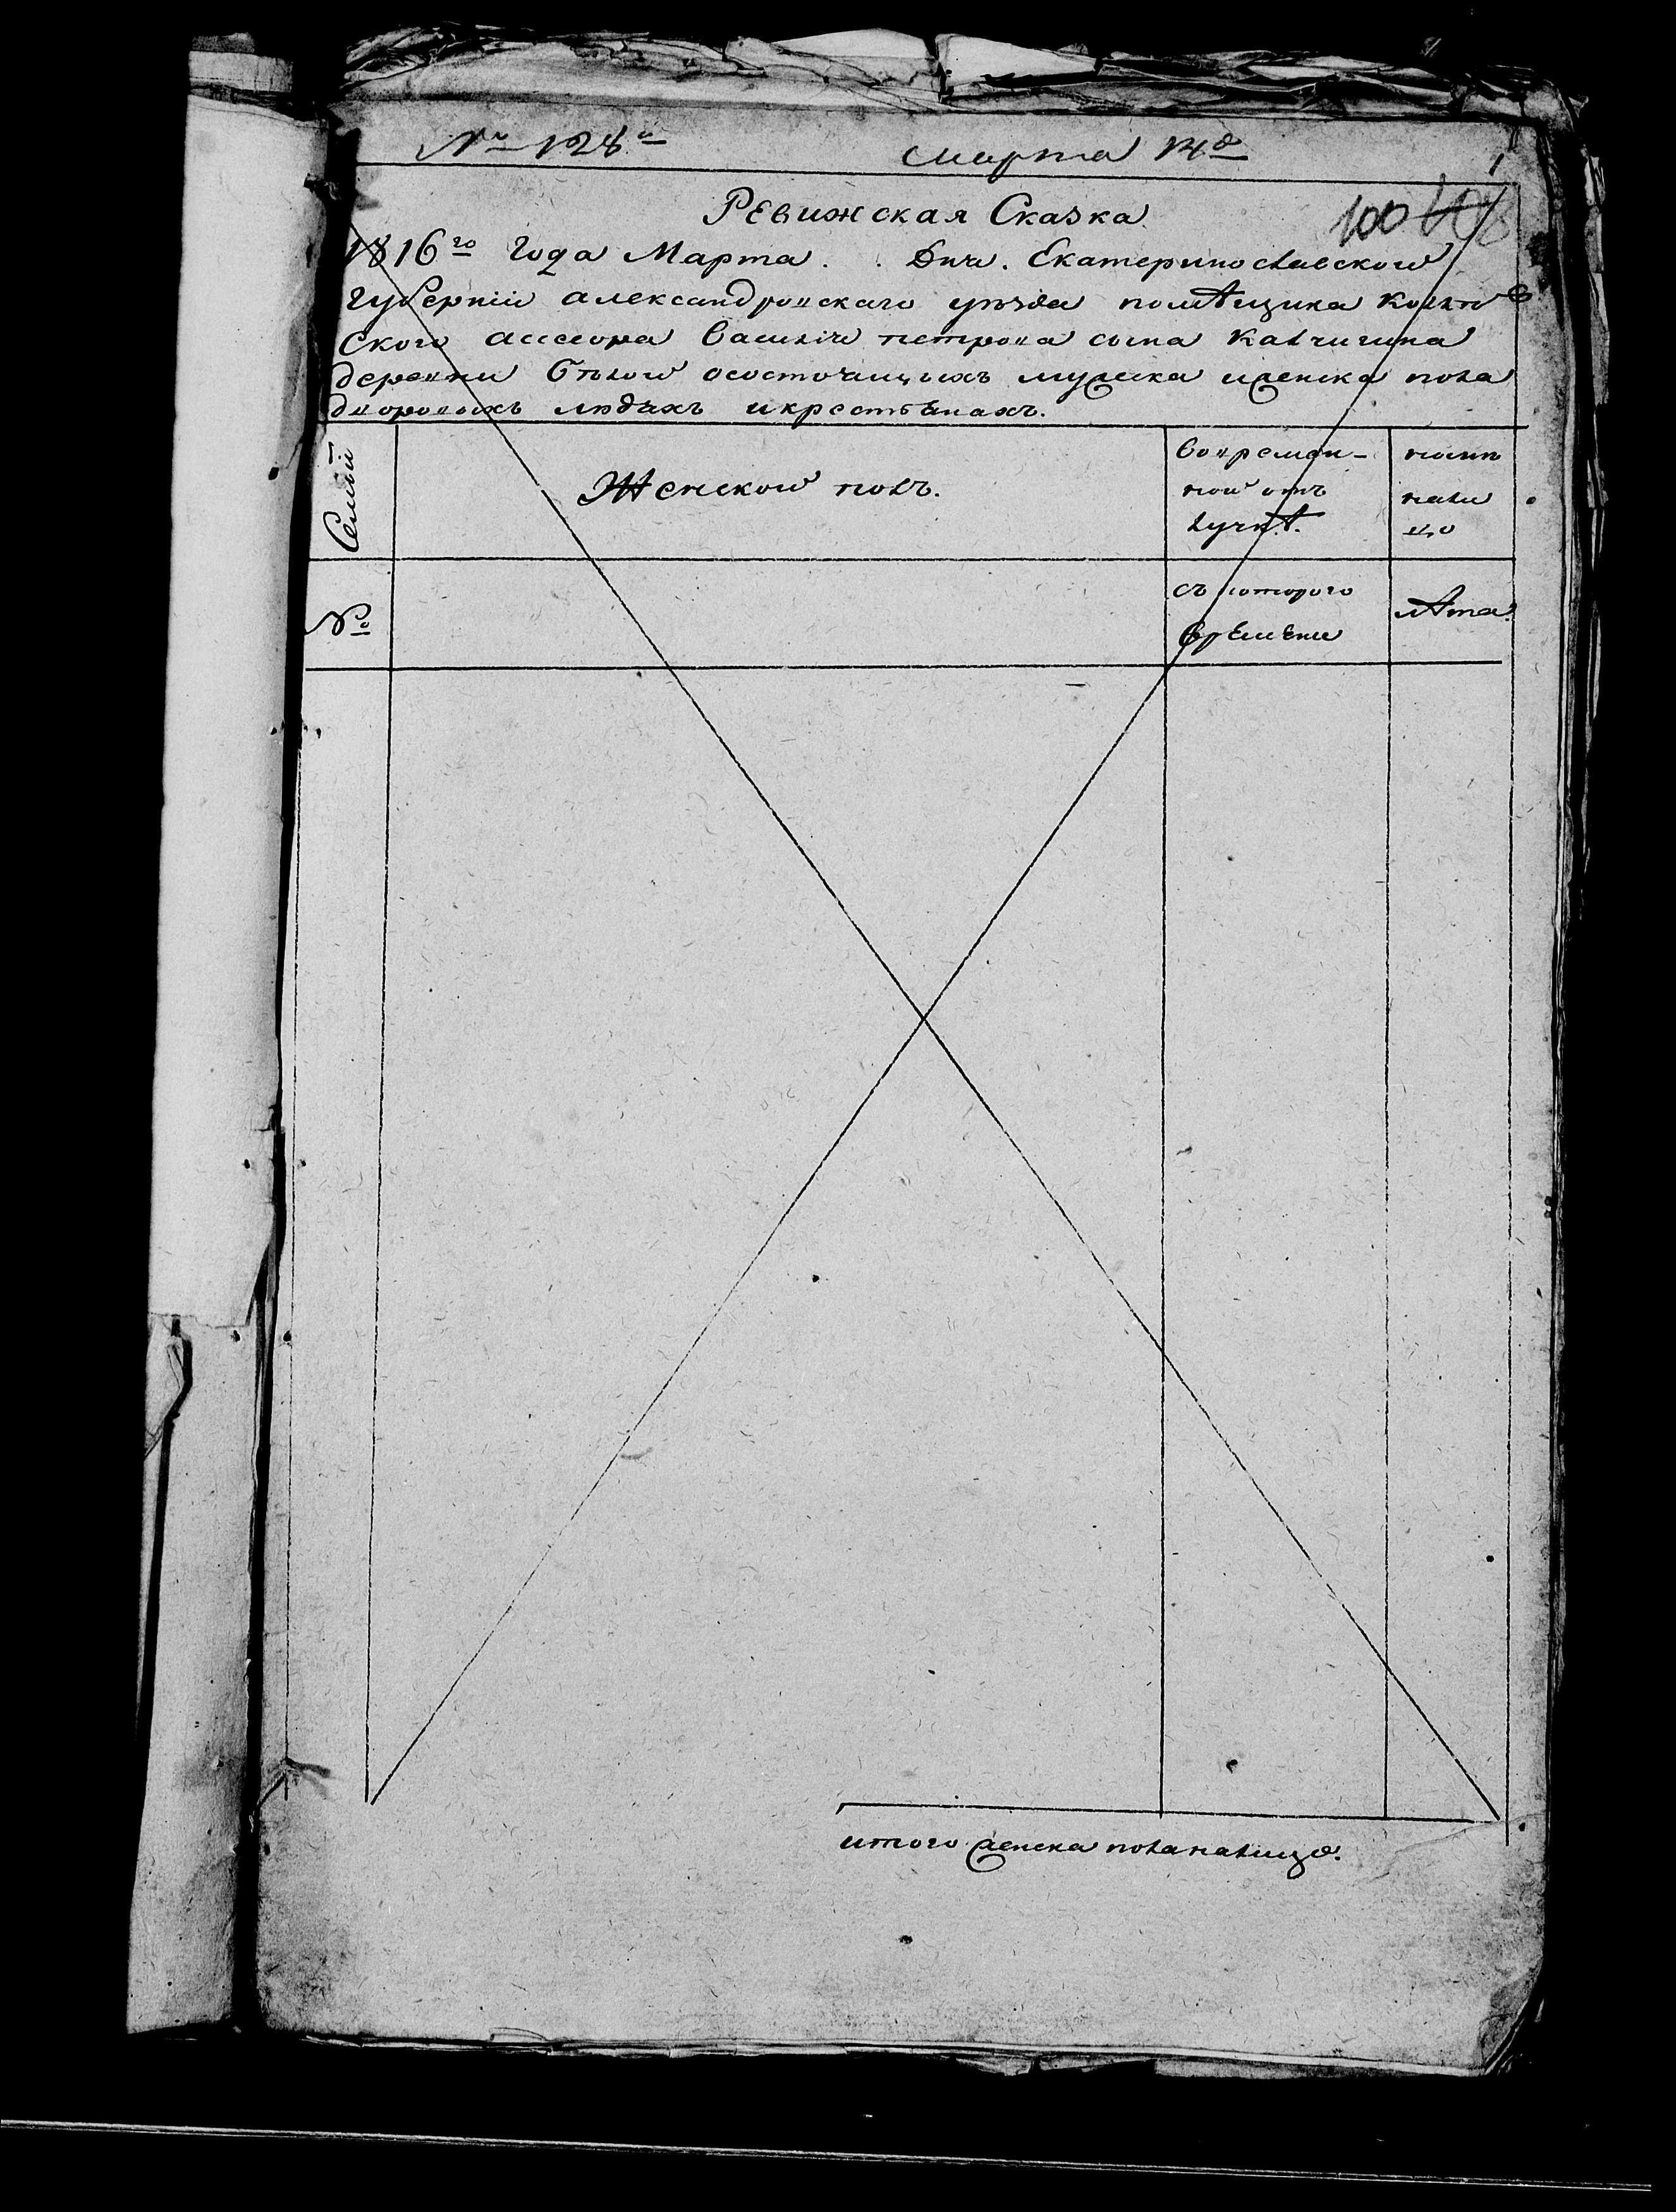 № 128й
марта 14д
1
100
Ревижская Сказка
1816го Года Марта . . Дня. Екатеринославской
Губернии александровскаго уѣзда помѣщика
ского ассесора василия петрова сына Калчигина
деревни Белой осостоящихъ мужеска иженска пола
дворовыхъ людяхъ икрестьянахъ.
Семьи
Женской полъ.
Вовремен-
ной отъ
лучкѣ.
ныне
нали
цо
№
съ которого
времени
лѣта.
итого женска пола налицо.